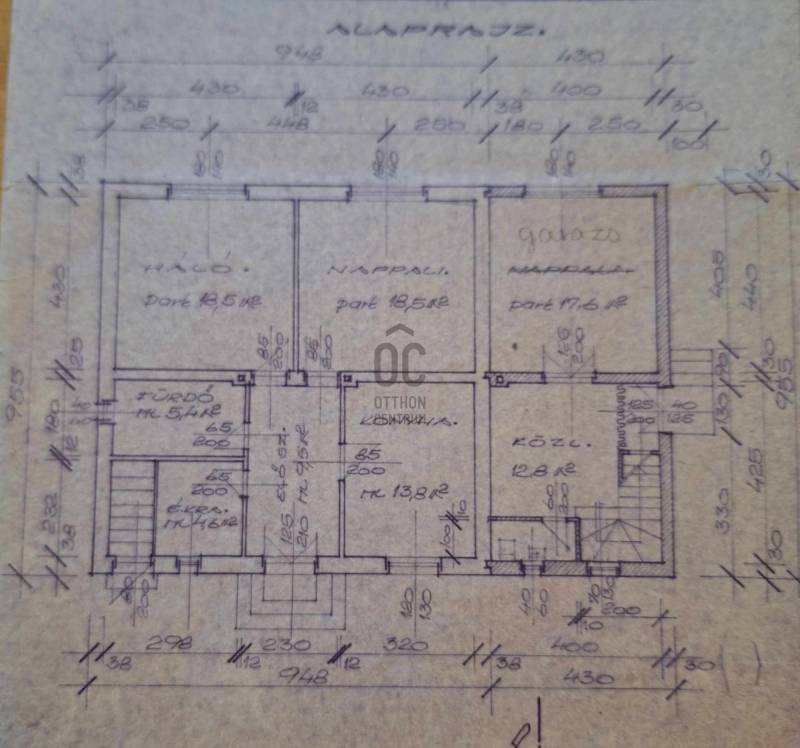 ALAPRAJZ.
948 430
430 430 400
38 12 38 30
250 448 250 180 250
100
180
140
180
140
180
140
HÁLÓ. NAPPALI. garázs
NAPPALI.
part 18,5 M² part 18,5 M² part 17,6 M²
85
200
85
200
200
OC
OTTHON
CENTRUM
FÜRDŐ
MK 5,4 M²
65
200
ELŐSZ.
MK 9,5 M²
KONYHA.
MK 13,8 M²
85
200
KÖZL.
12,8 M²
125
200
40
125
65
200
É.KRA.
MK 4,6 M²
125
210
60
200
100
10
200
120
130
40
60
200
298 230 320 400
38 12 12 38 30
948 430
955
38
430
25
180
12
232
38
405
90
130
330
30
440
30
425
30
955